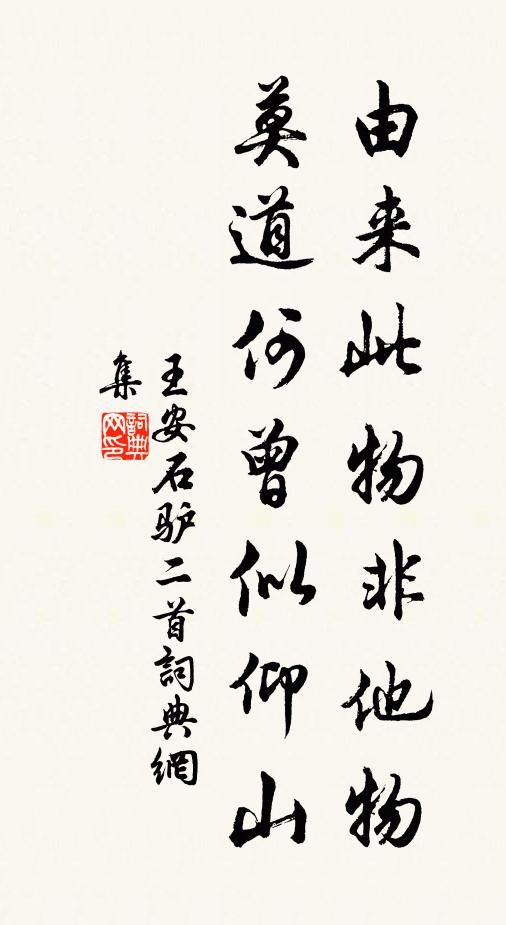 由来此物非他物
莫道何曾似仰山
王安石驴二首詞典網
集
詞典网印